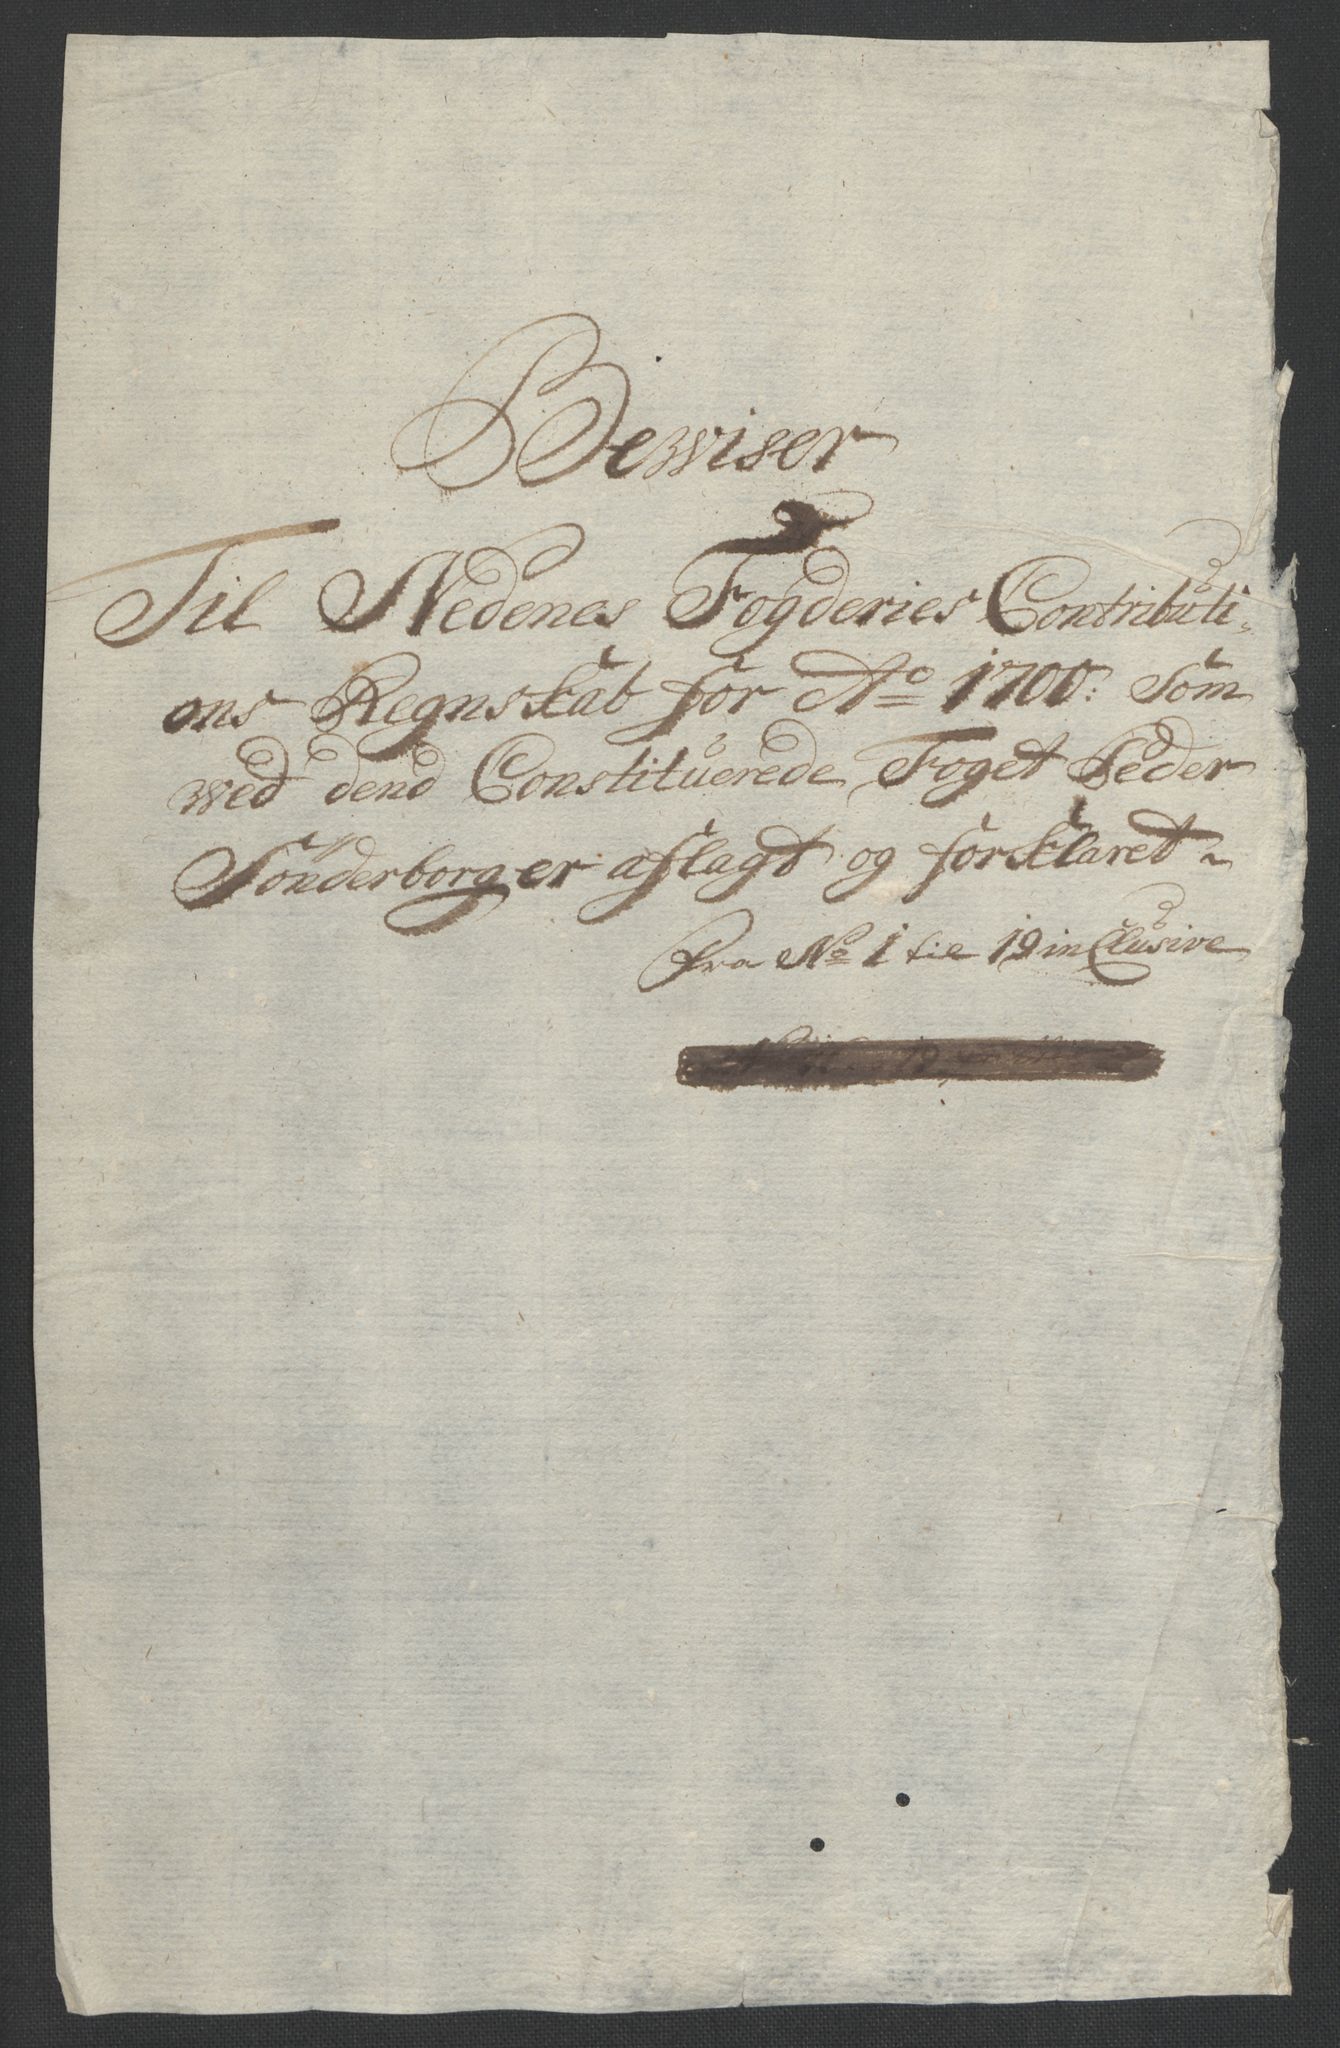 Bewiser
Til Nedenes Fogderies Contributi-
ons Regnskab for Ao 1700: Som
wed dend Constituerede Foget Peder
Sönderborg er aflagt og forklaret
Fra No 1 til 19 inClusive